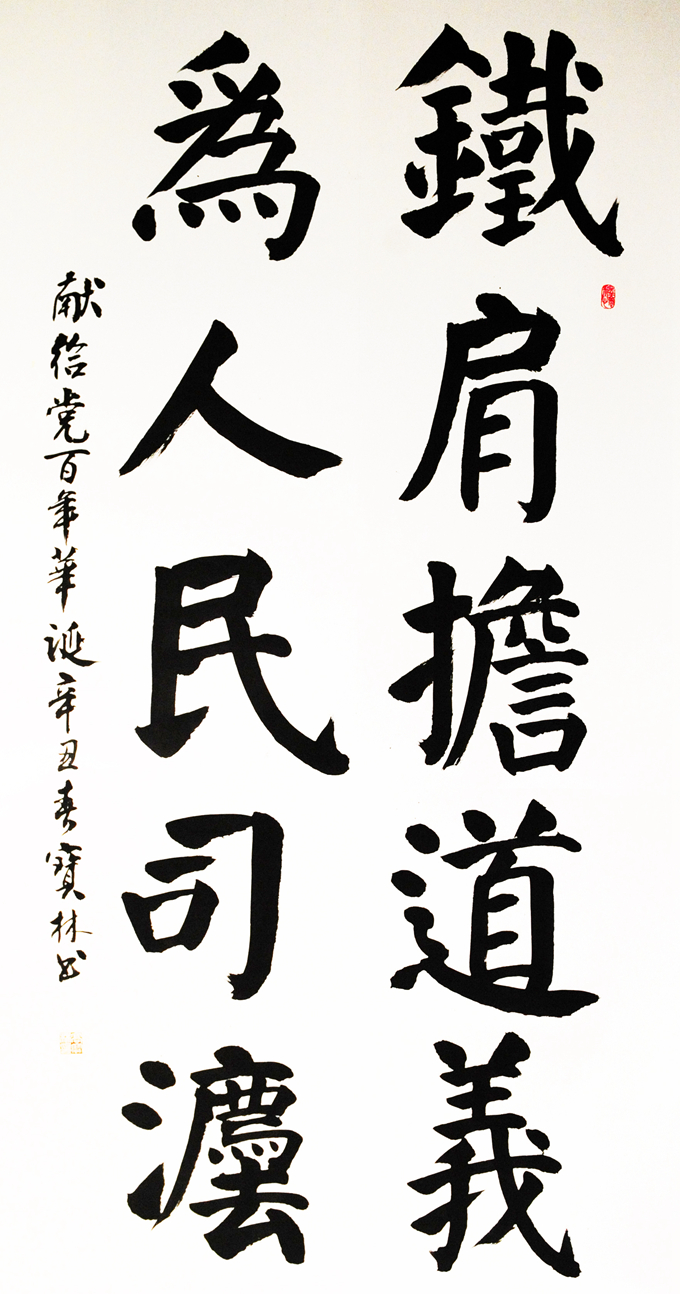 鐵肩擔道義
為人民司灋
献给党百年華誕辛丑春寶林书